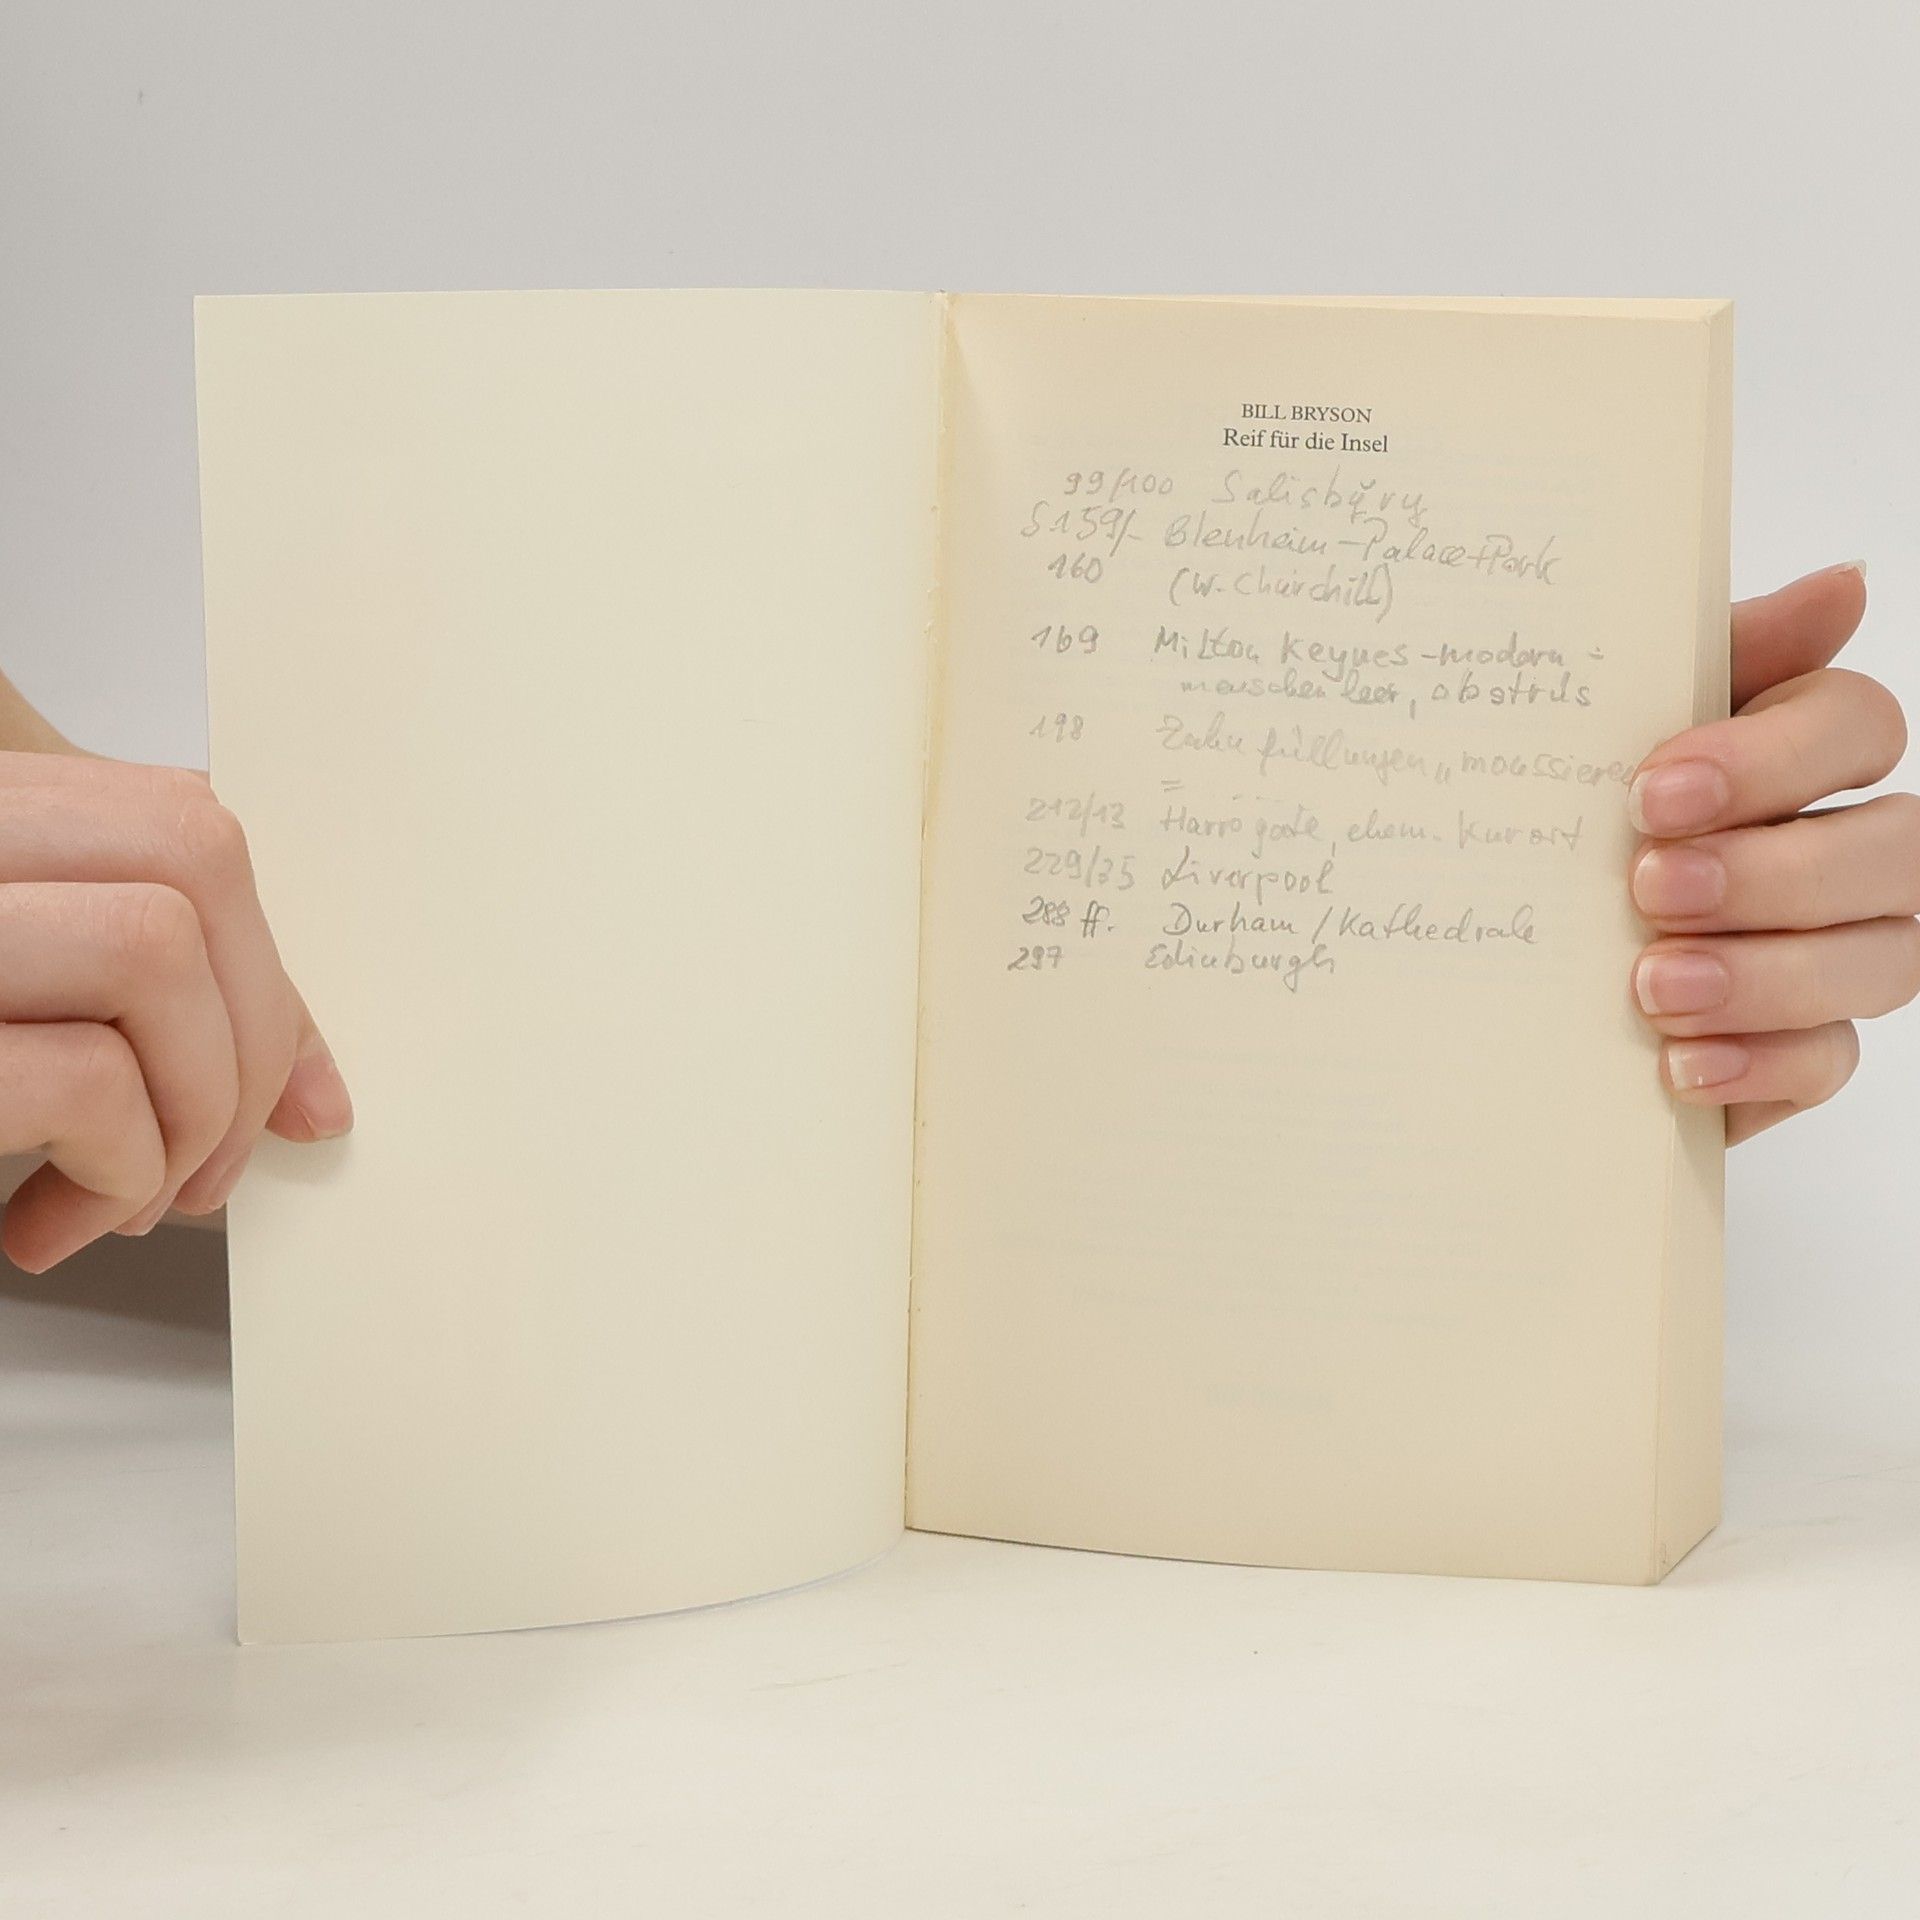 BILL BRYSON
Reif für die Insel
99/100 Salisbury
S 159/- Blenheim-Palace+Park
160 (W. Churchill)
169 Milton Keynes - modern -
menschenleer, obstrus
198 Zahnfüllungen „moussieren
=
212/13 Harrogate, ehem. Kurort
229/35 Liverpool
288 ff. Durham / Kathedrale
297 Edinburgh